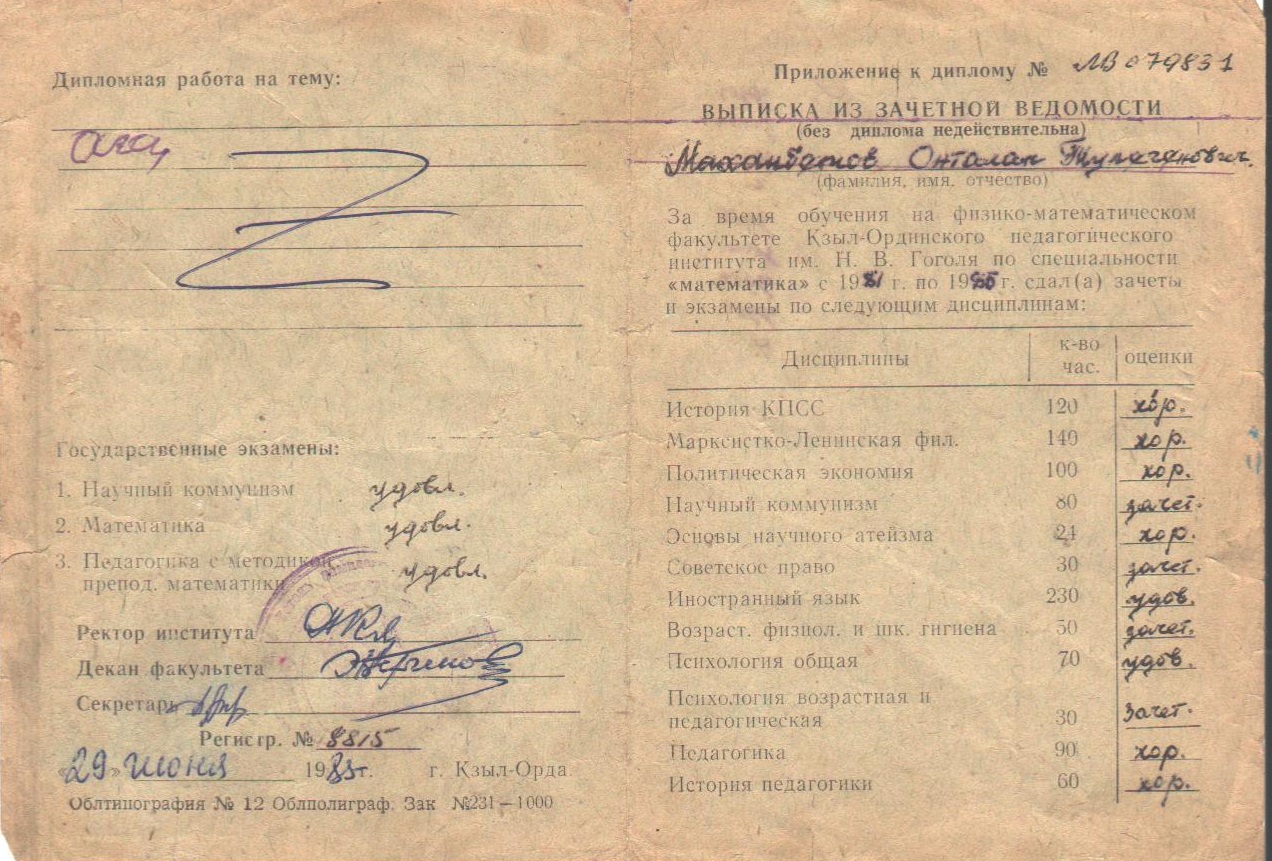 Дипломная работа на тему:
Государственные экзамены:
1. Научный коммунизм удовл.
2. Математика удовл.
3. Педагогика с методикой
препод. математики удовл.
Ректор института
Декан факультета
Секретарь
Регистр. № 8815
«29» июня 1985г. г. Кзыл-Орда.
Облтипография № 12 Облполиграф. Зак №231—1000
Приложение к диплому № ЛВ 079831
ВЫПИСКА ИЗ ЗАЧЕТНОЙ ВЕДОМОСТИ
(без диплома недействительна)
Маханбетов Онталап
(фамилия, имя, отчество)
За время обучения на физико-математическом
факультете Кзыл-Ординского педагогического
института им. Н. В. Гоголя по специальности
«математика» с 1981 г. по 1985 г. сдал(а) зачеты
и экзамены по следующим дисциплинам:
Дисциплины к-во час. оценки
История КПСС 120 хор.
Марксистко-Ленинская фил. 140 хор.
Политическая экономия 100 хор.
Научный коммунизм 80 зачет.
Основы научного атеизма 24 хор.
Советское право 30 зачет.
Иностранный язык 230 удов.
Возраст. физиол. и шк. гигиена 50 зачет.
Психология общая 70 удов.
Психология возрастная и
педагогическая 30 Зачет.
Педагогика 90 хор.
История педагогики 60 хор.